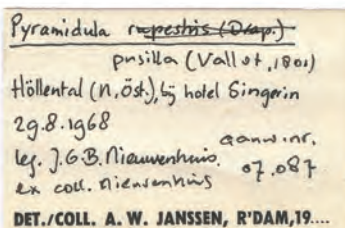 Pyramidula rupestris (Drap.)
pusilla (Vallot, 1801)
Höllental (N. Öst.), bij hotel Singerin
29.8.1968
aanw. nr.
leg. J.G.B. Nieuwenhuis.
07.087
ex coll. Nieuwenhuis
DET./COLL. A. W. JANSSEN, R'DAM, 19....